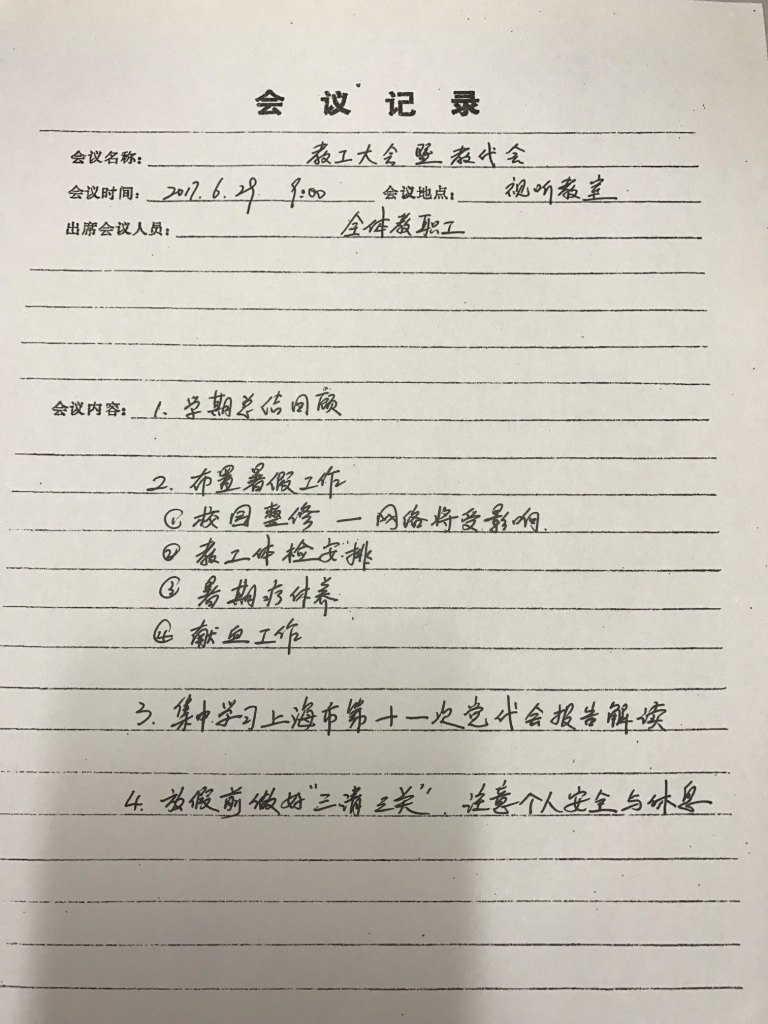 会议记录
会议名称: 教工大会暨教代会
会议时间: 2017.6.29 9:00 会议地点: 视听教室
出席会议人员: 全体教职工
会议内容: 1. 学期总结回顾
2. 布置暑假工作
① 校园整修 — 网络将受影响.
② 教工体检安排
③ 暑期疗休养
④ 献血工作
3. 集中学习上海市第十一次党代会报告解读
4. 放假前做好"三清三关", 注意个人安全与休息